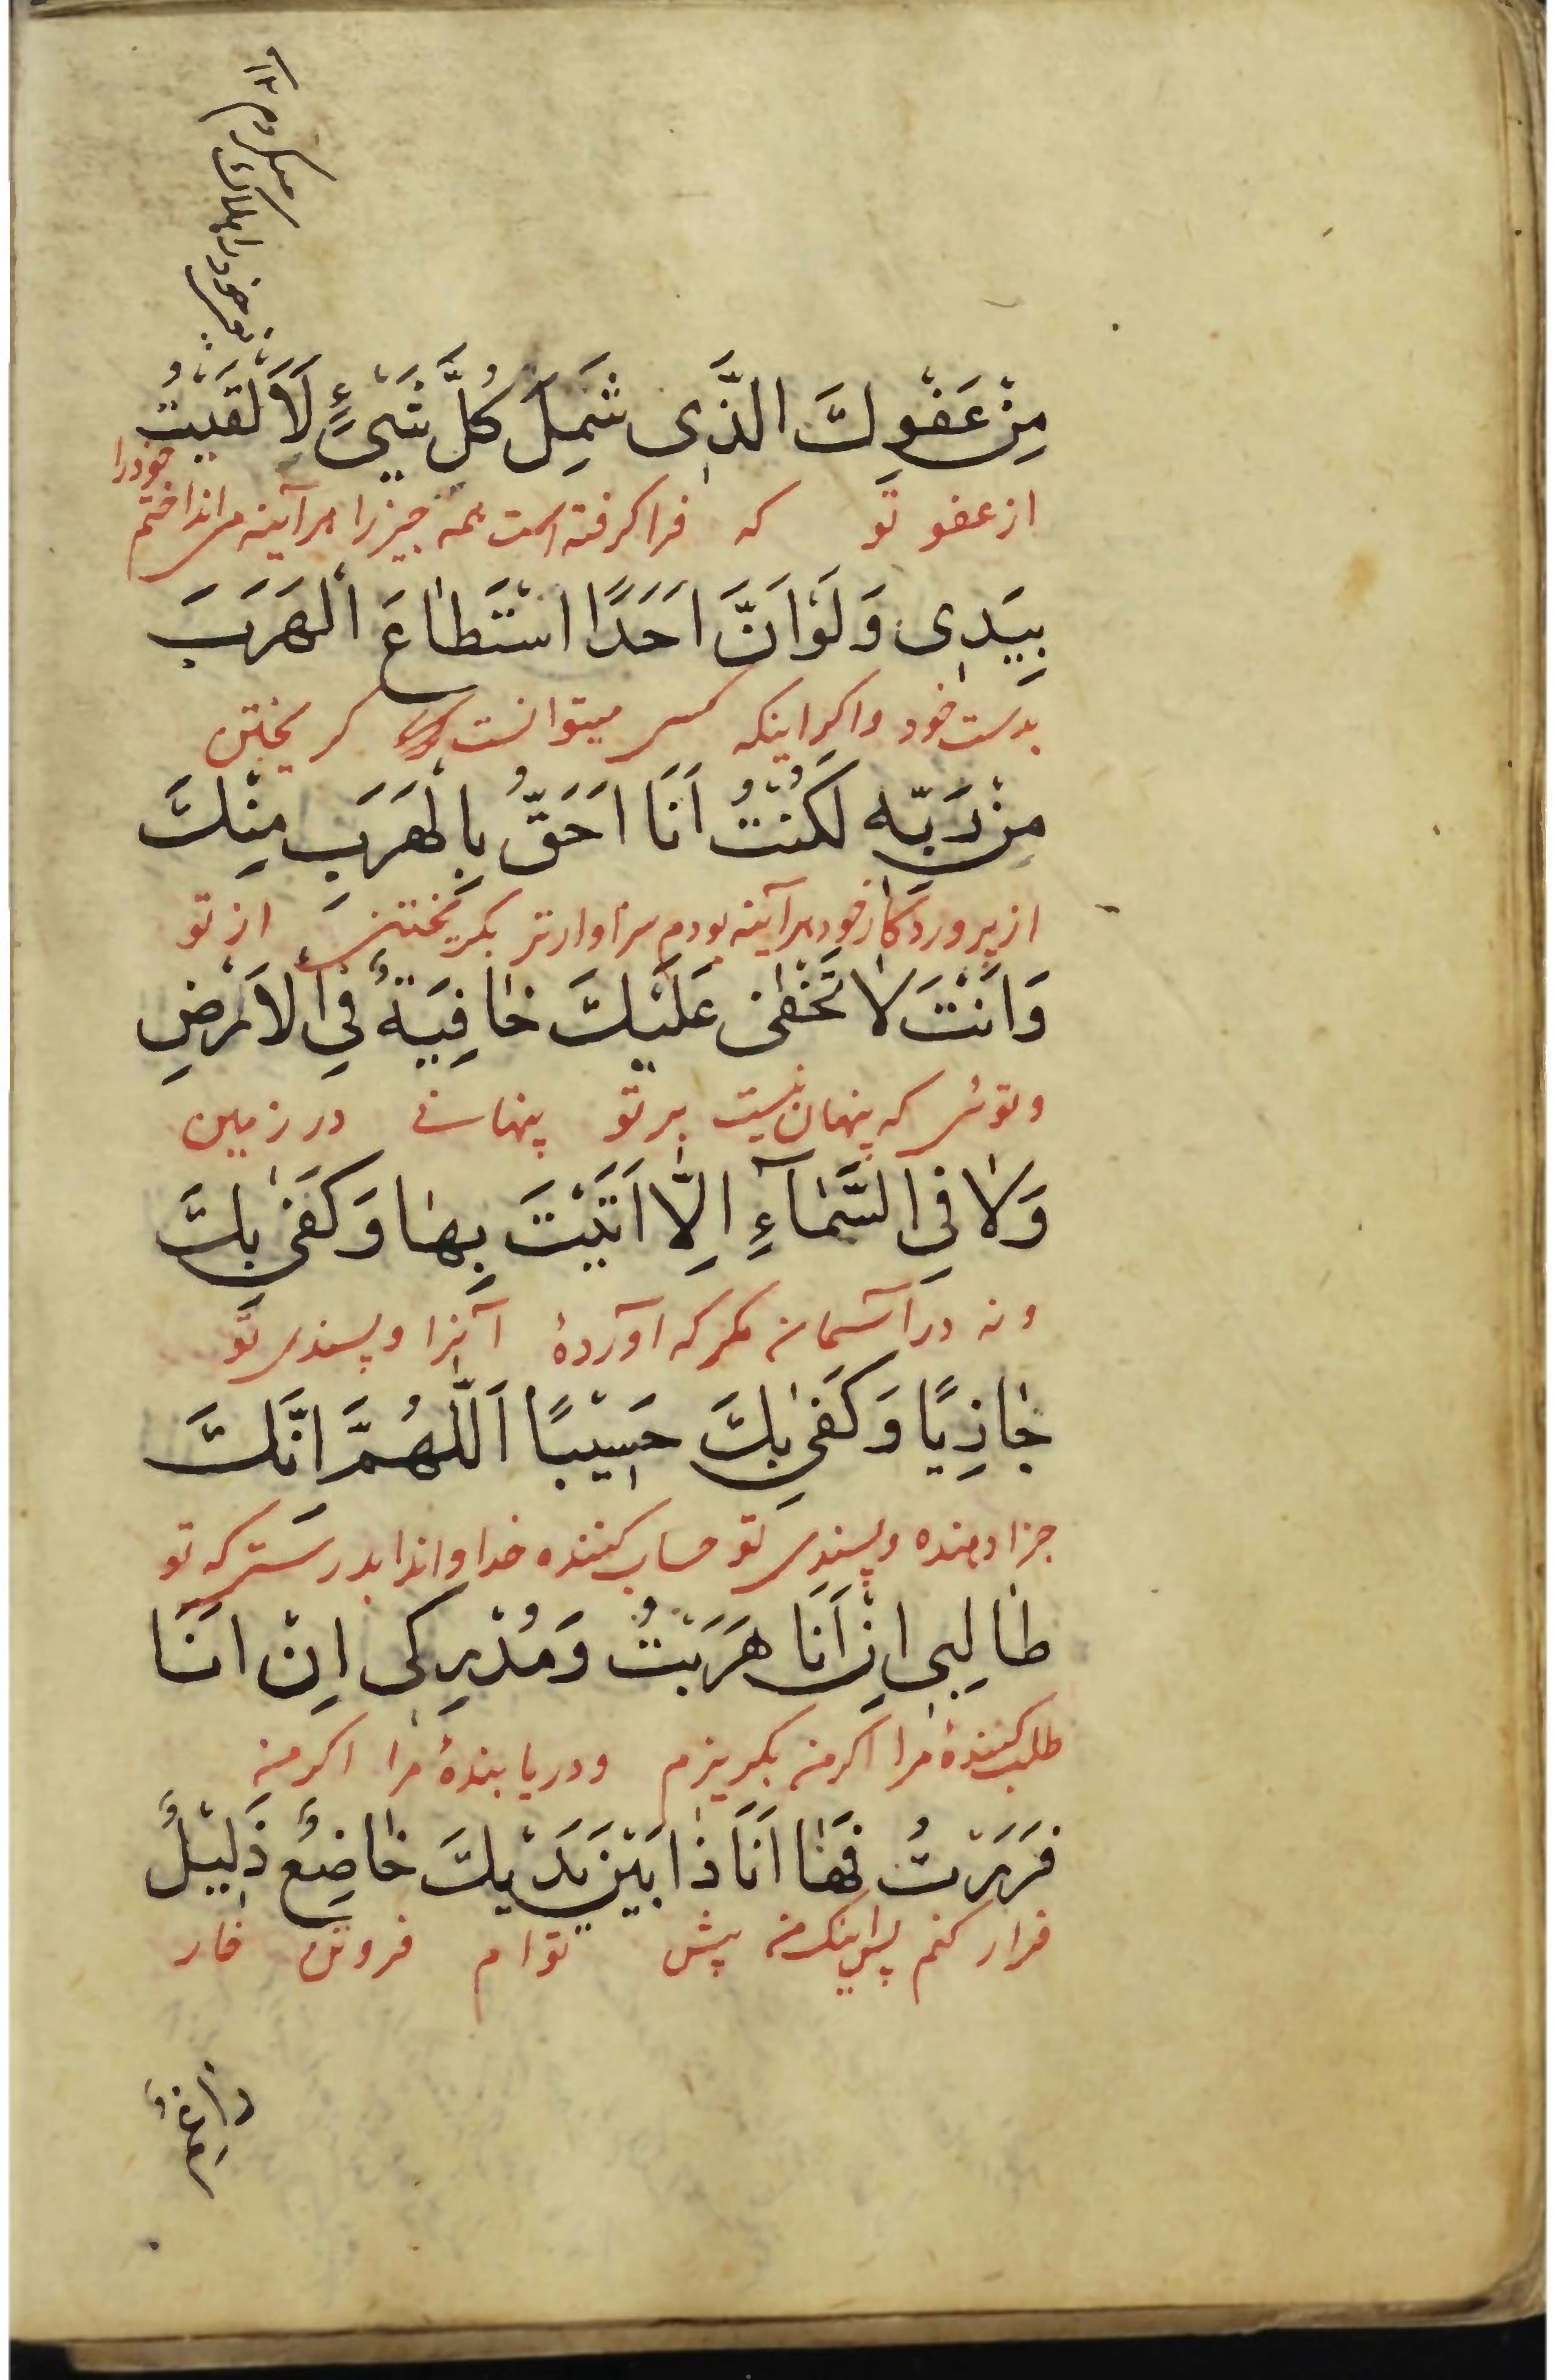 یعنی خود را هلاک میکردم ۱۲
مِنْ عَفْوِكَ الَّذِی شَمِلَ كُلَّ شَیْءٍ لَاَلْقَیْتُ
خودرا
از عفو تو که فراکرفته است همه چیز را هرآینه می انداختم
بِیَدِی وَلَوْ اَنَّ اَحَدًا اسْتَطاعَ الْهَرَبَ
بدست خود واکر اینکه کسی میتوانست کریختن
مِنْ رَبِّه لَكُنْتُ اَنَا اَحَقُّ بِالْهَرَبِ مِنْكَ
از پروردکار خود هرآینه بودم سزاوارتر بکریختن از تو
وَاَنْتَ لا تَخْفٰی عَلَیْكَ خافِیَةٌ فِی الْاَرْضِ
وتوئی که پنهان نیست بر تو پنهانی در زمین
وَلا فِی السَّمآءِ اِلّا اَتَیْتَ بِها وَكَفٰی بِكَ
ونه در آسمان مکر که آوردهٔ آنرا وبسندی تو
جازِیًا وَكَفٰی بِكَ حَسِیْبًا اَللّٰهُمَّ اِنَّكَ
جزا دهنده وبسندی تو حساب کننده خداوندا بدرستی که تو
طالِبِی اِنْ اَنَا هَرَبْتُ وَمُدْرِكِی اِنْ اَنَا
طلب کنندهٔ مرا اکر من بکریزم ودریابندهٔ مرا اکر من
فَرَرْتُ فَها اَنَا ذا بَیْنَ یَدَیْكَ خاضِعٌ ذَلِیْلٌ
فرار کنم پس اینک من پیش توام فروتن خار
راغِمٌ